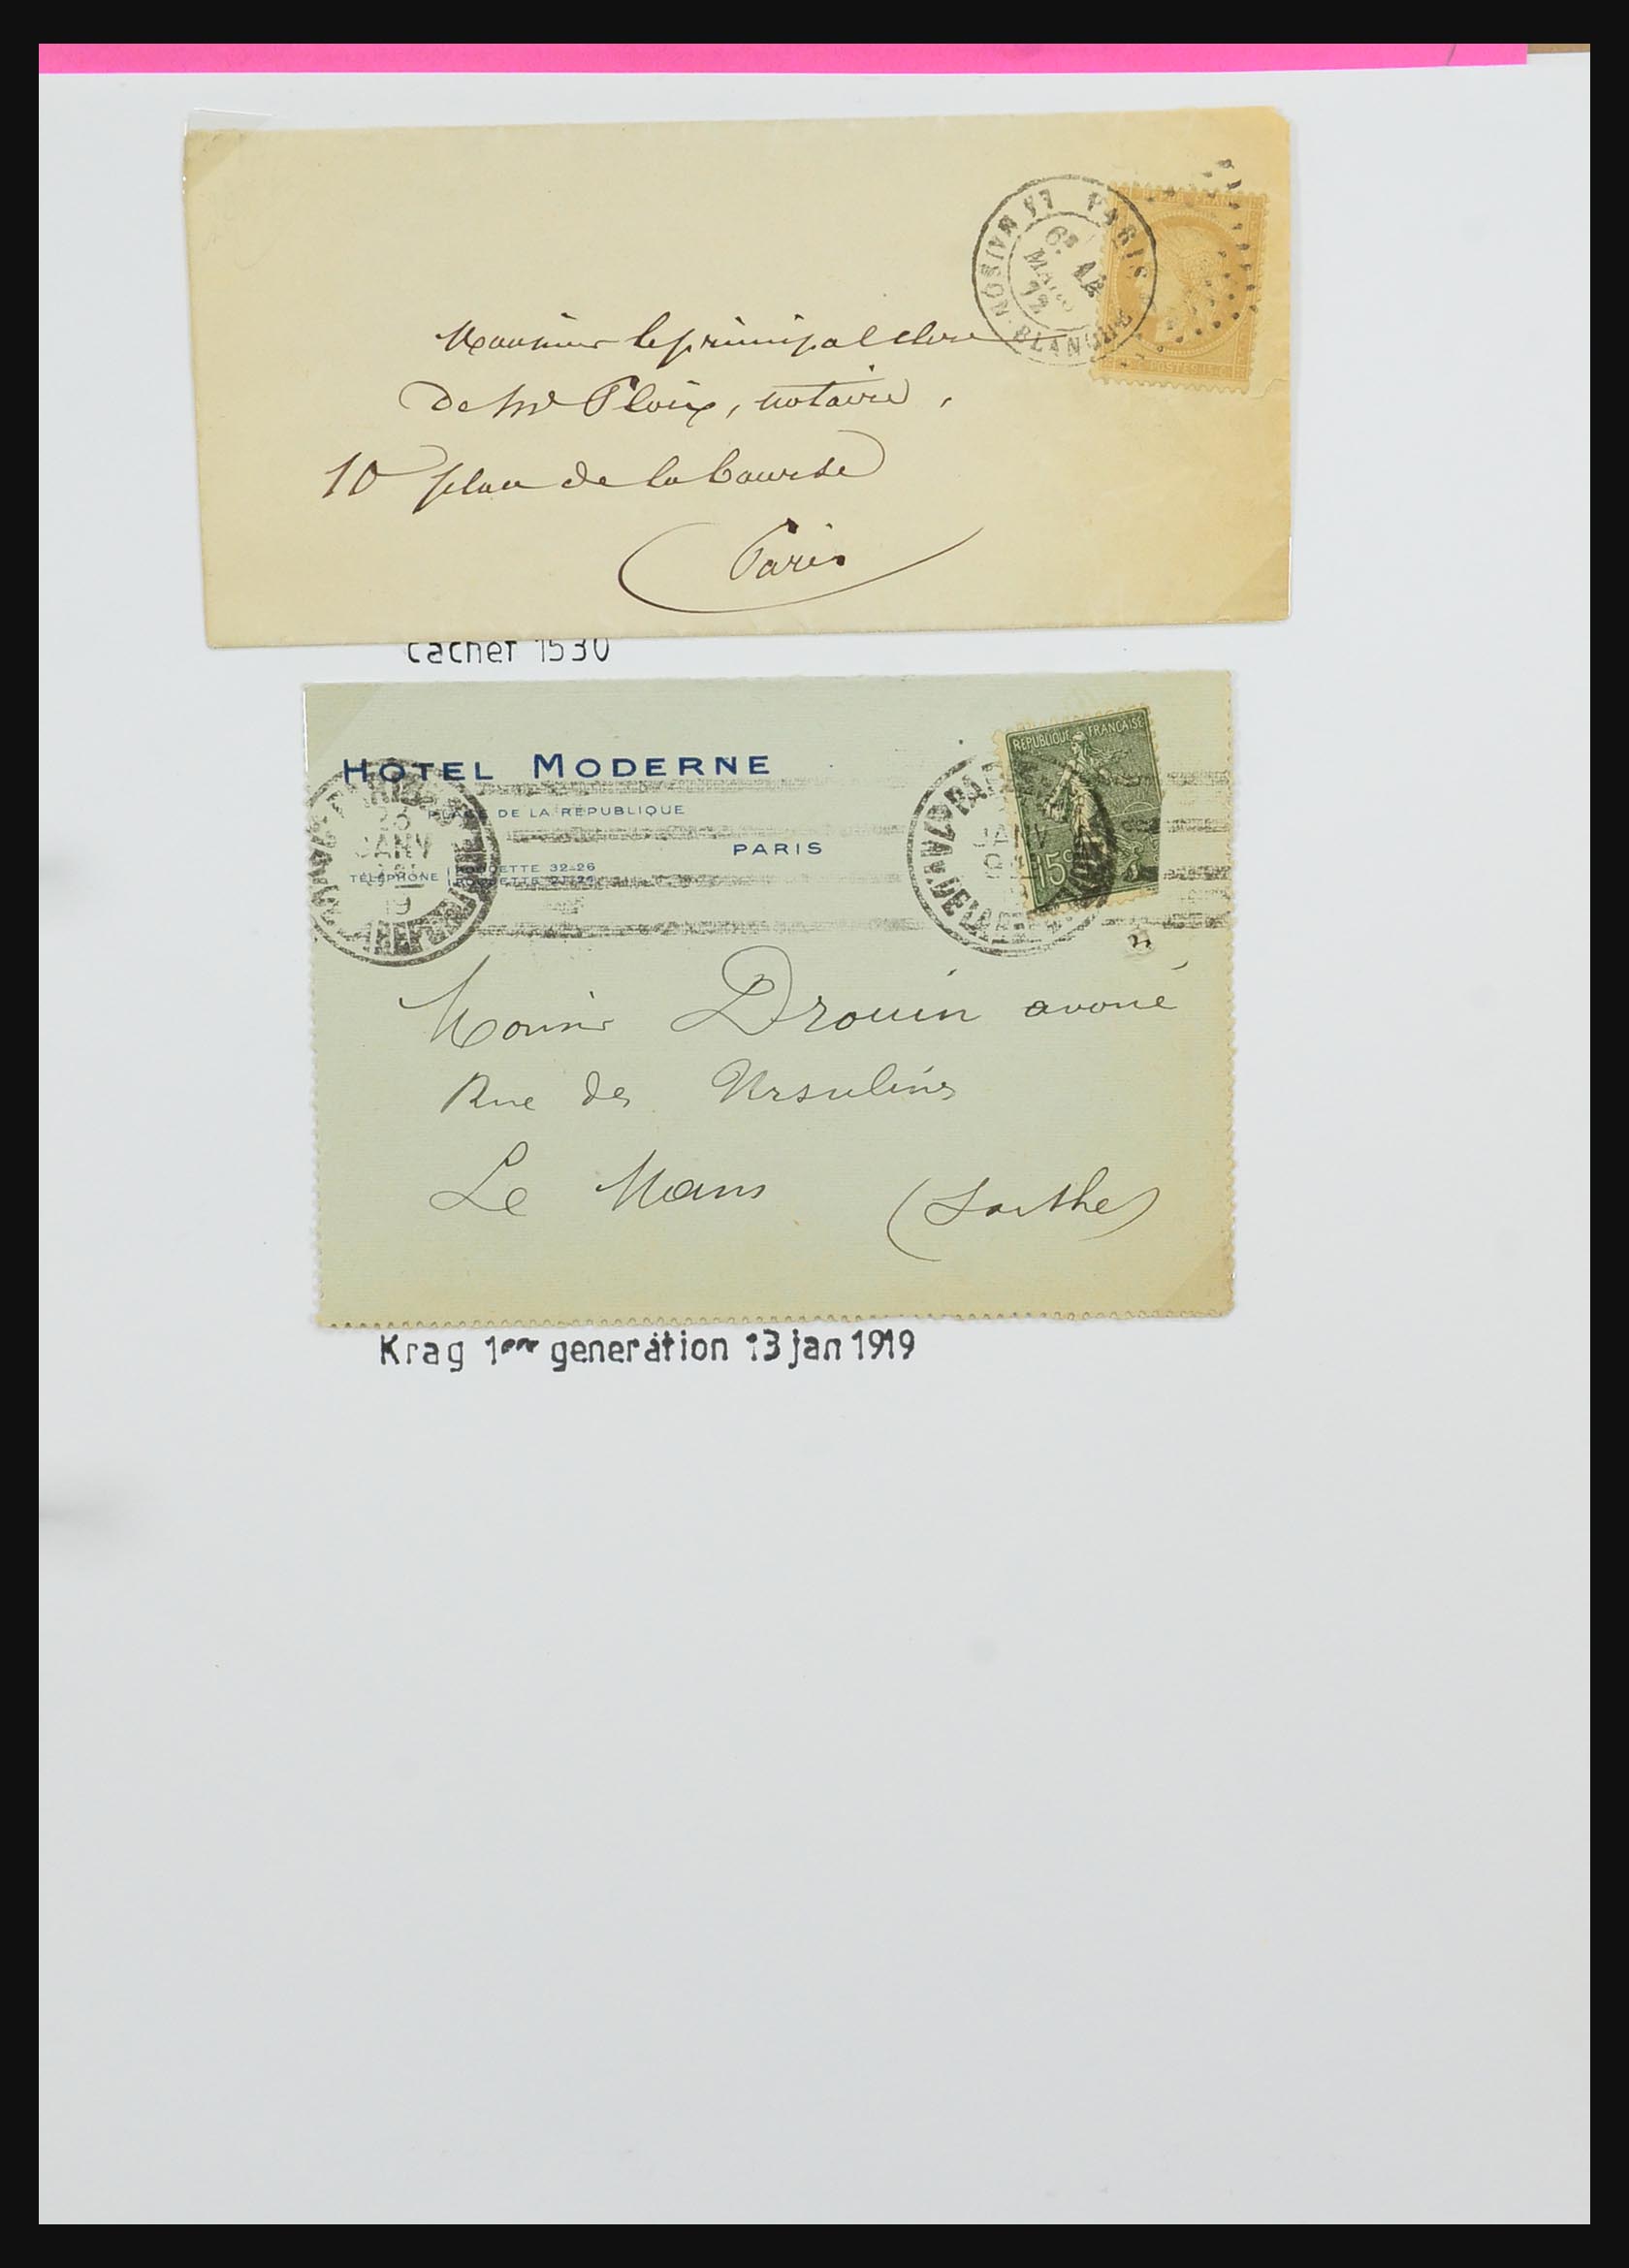 PARIS LA MAISON-BLANCHE
6E
MARS
72
POSTES
Monsieur le principal clerc
De Me Ploix, notaire,
10 place de la bourse
Paris
cachet 1530
HOTEL MODERNE
PLACE DE LA RÉPUBLIQUE
PARIS
TÉLÉPHONE
ROQUETTE 32-26
JANV
19
RÉPUBLIQUE FRANÇAISE
15c
Monsieur Drouin avoué
Rue des Ursulines
Le Mans (Sarthe)
Krag 1ere generation 13 jan 1919